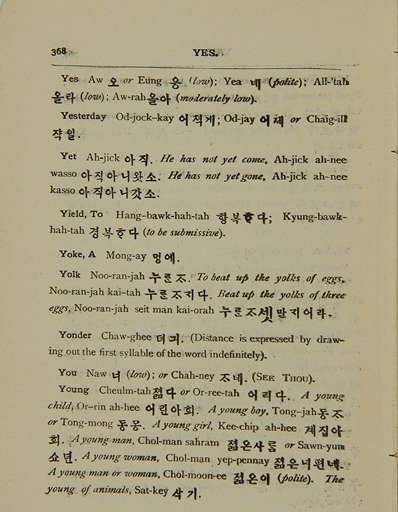 368 YES.
Yes Aw 오 or Eung 응 (low); Yea 네 (polite); All-'tah
올타 (low); Aw-rah 올아 (moderately low).
Yesterday Od-jock-kay 어적게; Od-jay 어제 or Chaig-ill
쟉일.
Yet Ah-jick 아직. He has not yet come, Ah-jick ah-nee
wasso 아직아니왓소. He has not yet gone, Ah-jick ah-nee
kasso 아직아니갓소.
Yield, To Hang-bawk-hah-tah 항복ᄒᆞ다; Kyung-bawk-
hah-tah 경복ᄒᆞ다 (to be submissive).
Yoke, A Mong-ay 멍에.
Yolk Noo-ran-jah 누른ᄌᆞ. To beat up the yolks of eggs,
Noo-ran-jah kai-tah 누른ᄌᆞ지다. Beat up the yolks of three
eggs, Noo-ran-jah seit man kai-orah 누른ᄌᆞ셋만지어라.
Yonder Chaw-ghee 뎌긔. (Distance is expressed by draw-
ing out the first syllable of the word indefinitely).
You Naw 너 (low); or Chah-ney ᄌᆞ네. (SEE THOU).
Young Cheulm-tah 졂다 or Or-ree-tah 어리다. A young
child, Or-rin ah-hee 어린아희. A young boy, Tong-jah 동ᄌᆞ
or Tong-mong 동몽. A young girl, Kee-chip ah-hee 계집아
희. A young man, Chol-man sahram 졂은사ᄅᆞᆷ or Sawn-yun
쇼년. A young woman, Chol-man yep-pennay 졂은녀편네.
A young man or woman, Chol-moon-ee 졂은이 (polite). The
young of animals, Sat-key 삭기.